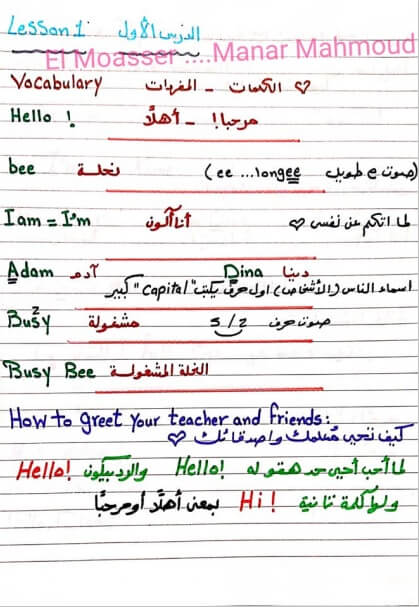 Lesson 1 الدرس الأول
El Moasser ....Manar Mahmoud
Vocabulary الكلمات - المفردات ♡
Hello ! مرحبا! - أهلًا
bee نحلة (صوت e طويل ee ...longee)
I am = I'm أنا أكون لما اتكلم عن نفسى ♡
Adam آدم Dina دينا
اسماء الناس (الأشخاص) اول حرف يكتب "Capital" كبير
Busy مشغولة صوت حرف s/z
z
Busy Bee النحلة المشغولة
How to greet your teacher and friends:
كيف تحيى معلمك واصدقائك ♡
لما أحب أحيى حد هقوله Hello! والرد بيكون Hello!
ولها كلمة تانية Hi! بمعنى أهلًا أو مرحبًا